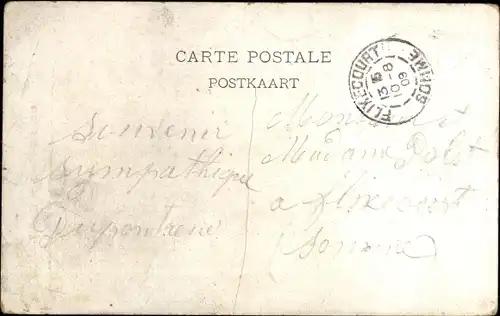 CARTE POSTALE
POSTKAART
FLIXECOURT SOMME
13 15
10-8
09
Souvenir
sympathique
Monsieur
Madame
a Flixecourt
Somme